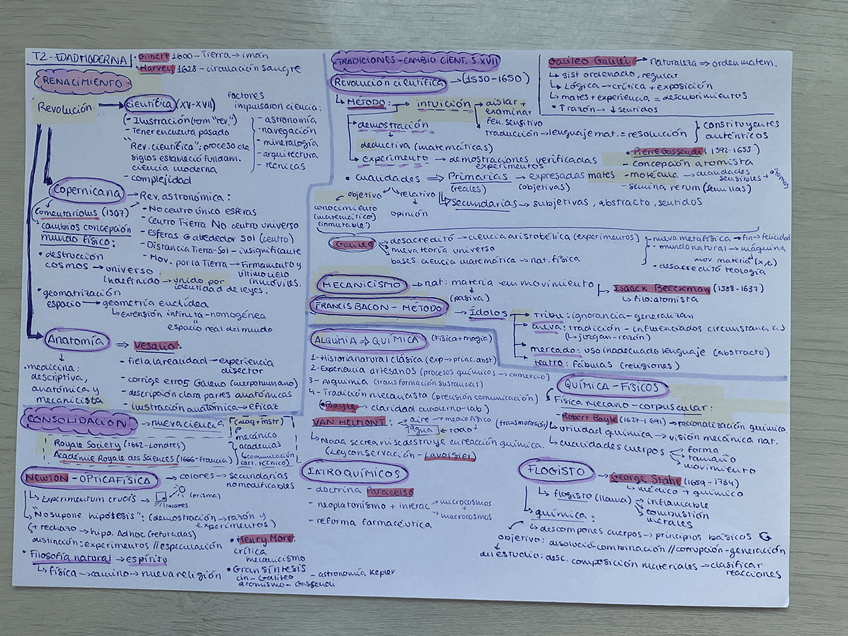 T2 - EDAD MODERNA
• Gilbert 1600 - Tierra → imán
• Harvey 1628 - circulación sangre
RENACIMIENTO
Revolución → Científica (XV-XVII)
- Ilustración (rom "rev")
- Tener en cuenta pasado
"Rev. científica": proceso de
siglos estableció fundam.
ciencia moderna
- complejidad
factores
impulsaron ciencia:
- astronomía
- navegación
- mineralogía
- arquitectura
- técnicas
Copernicana → Rev. astronómica:
Comentariolus (1507)
- No centro único esferas
- Centro Tierra No centro universo
- Esferas alrededor Sol (centro)
- Distancia Tierra-Sol → insignificante
- Mov. por la Tierra → Firmamento y
último cielo
inmóviles.
cambios concepción
mundo físico:
• destrucción
cosmos → universo
indefinido → unido por
identidad de leyes.
• geometrización
espacio → geometría euclídea
↳ extensión infinita → homogénea
espacio real del mundo
Anatomía → Vesalio:
• medicina:
descriptiva,
anatómica y
mecanicista
- fiel a la realidad → experiencia
director
- corrige errores Galeno (cuerpo humano)
- descripción clara partes anatómicas
- ilustración anatómica → eficaz
CONSOLIDACIÓN → nueva ciencia
(maq + instr)
método
academias
comunicación
(art. técnico)
Royale Society (1662-Londres)
Académie Royale des Sciences (1666-Francia)
NEWTON - OPTICA FÍSICA → colores → secundarias
no modificables
↳ Experimentum crucis → (prisma)
colores
↳ "No supone hipótesis": (demostración → razón y
experimentos)
(+ rechazo → hipo. Adhoc (refutadas)
distinción: experimentos // especulación
• Filosofía natural → espíritu
↳ física → camino → nueva religión
• Henry More:
crítica
mecanicismo
• Gran síntesis
cin - Galileo
atomismo - Gassendi
- astronomía Kepler
TRADICIONES - CAMBIO CIENT. S. XVII
Revolución científica → (1550-1650)
↳ MÉTODO: → intuición → aislar +
examinar
fen. sensitivo
→ demostración
traducción → lenguaje mat. = resolución
deductiva (matemáticas)
constituyentes
auténticos
→ experimento → demostraciones verificadas
experimentos
• cualidades ⇒ Primarias → expresadas mates
(reales) (objetivas)
objetivo relativo
↳ secundarias → subjetivas, abstracto, sentidos
conocimiento
(matemático)
(inmutable)
opinión
Galileo Galilei → naturaleza ⇒ orden matem.
↳ sist ordenado, regular
↳ Lógica → crítica + exposición
↳ mates + experiencia = descubrimientos
• ↑razón → ↓ sentidos
• Pierre Gassendi (1592-1655)
- concepción atomista
- molécula → cualidades
sensibles + átomos
- semina rerum (semillas)
Galileo → desacreditó → ciencia aristotélica (experimentos)
↳ nueva teoría universo
bases ciencia matemática → nat. física
- nueva metafísica → fin → felicidad
- mundo natural → máquina
mov materia
- desacreditó teología
MECANICISMO → nat: materia en movimiento
(pasiva)
Isaack Beeckman (1588-1637)
↳ filo. atomista
FRANCIS BACON - MÉTODO → Ídolos
→ tribu: ignorancia - generalizan
→ cueva: tradición - influenciados circunstancias
(↳ jorgan - razón)
→ mercado: uso inadecuado lenguaje (abstracto)
→ teatro: fábulas (religiones)
ALQUIMIA → QUÍMICA (física + magia)
1- Historia natural clásica (exp → princ. abst)
2- Experiencia artesanos (procesos químicos → comercio)
3- Alquimia (transformación sustancias)
4- Tradición mecanicista (precisión comunicación)
↳ Boyle → claridad cuaderno-lab
VAN HELMONT: → aire → medio físico
agua → todo (transmutación)
↳ Nada se crea ni se destruye en reacción química.
(Ley conservación - Lavoisier)
IATROQUÍMICOS
- doctrina Paracelso
- neoplatonismo + interac → microcosmos
→ macrocosmos
- reforma farmacéutica
QUÍMICA - FÍSICOS
Física mecano-corpuscular:
• Robert Boyle (1627-1691) → racionalización química
↳ unidad química → visión mecánica nat.
↳ cualidades cuerpos → forma
tamaño
movimiento
FLOGISTO → George Stahl (1659-1734)
↳ médico + químico
↳ flogisto (llama) → inflamable
combustión
metales
↳ química:
↳ descomponer cuerpos → principios básicos
objetivo: disolución combinación // corrupción - generación
↳ estudio: desc. composición materiales → clasificar
reacciones